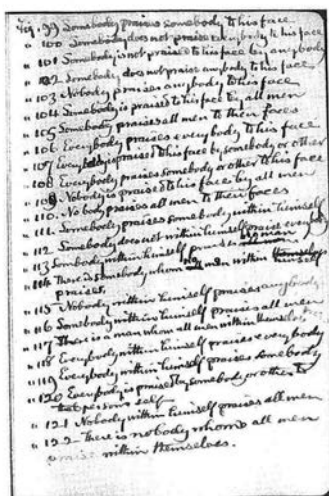 Fig. 99 Somebody praises somebody to his face
" 100 Somebody does not praise everybody to his face
" 101 Somebody is not praised to his face by anybody
" 102 Somebody does not praise anybody to his face
" 103 Nobody praises anybody to his face
" 104 Somebody is praised to his face by all men
" 105 Somebody praises all men to their faces
" 106 Everybody praises everybody to his face
" 107 Everybody is praised to his face by somebody or other
" 108 Everybody praises somebody or other to his face
" 109 Nobody is praised to his face by all men
" 110 Nobody praises all men to their faces
" 111 Somebody praises somebody within himself
" 112 Somebody does not within himself praise everybody
" 113 Somebody within himself praises no man
" 114 There is somebody whom no man within himself
praises.
" 115 Nobody within himself praises anybody
" 116 Somebody within himself praises all men
" 117 There is a man whom all men within themselves
" 118 Everybody within himself praises everybody
" 119 Everybody within himself praises somebody
" 120 Everybody is praised by somebody or other to
that person's self
" 121 Nobody within himself praises all men
" 122 There is nobody whom all men
praise within themselves.